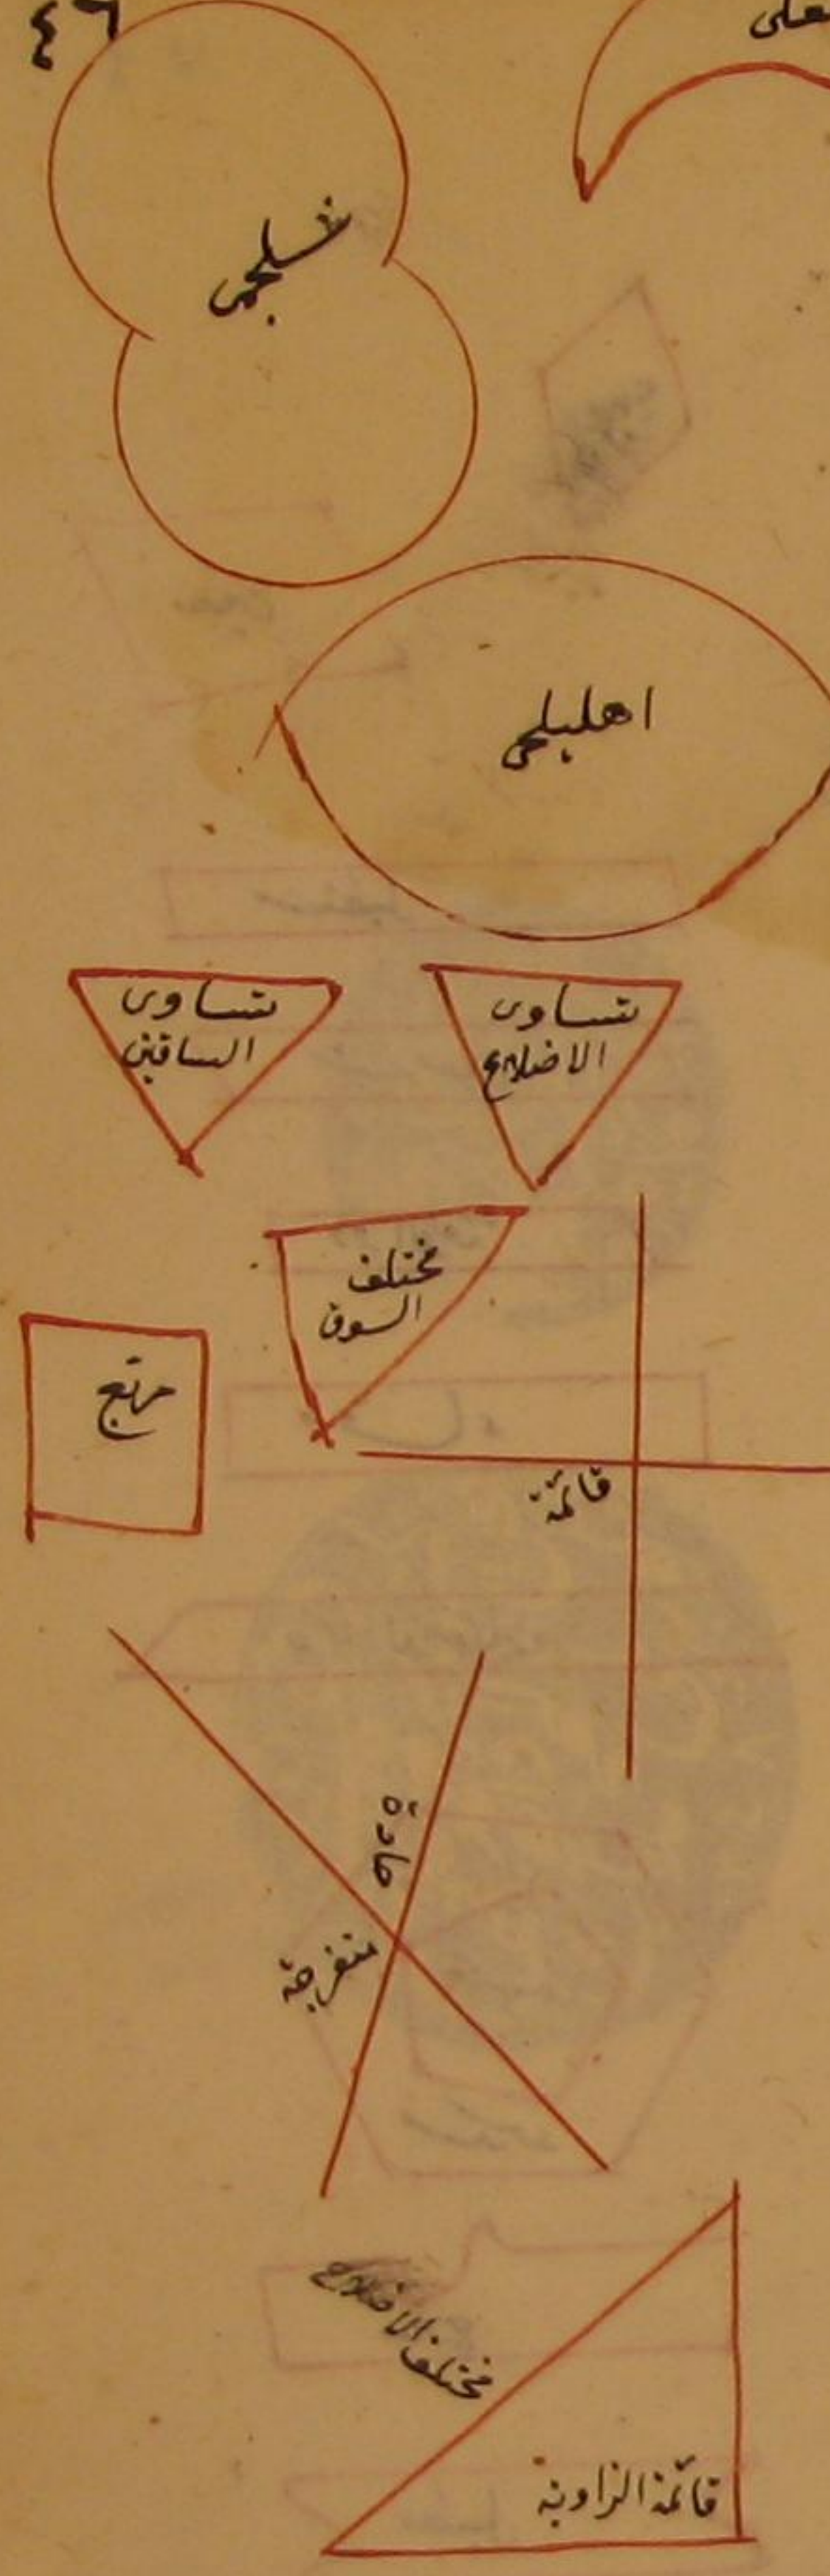 ٤٦
شلجمى
اهليلجى
متساوى
الاضلاع
متساوى
الساقين
مختلف
السوق
مربع
قائمة
حادة
منفرجة
مختلف الاضلاع
قائمة الزاوية